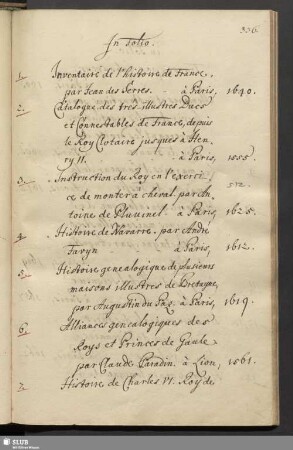 336.
In Folio.
1. Inventaire de l'histoire de France,
par Jean des Serres. à Paris, 1640.
2. Catalogue des tres illustres Ducs
et Connestables de France, depuis
le Roy Clotaire jusques à Hen-
ry II. à Paris, 1555.
3. Instruction du Roy en l'exerci-
ce de monter à cheval par An-
toine de Pluvinel. à Paris, 1625.
4. Histoire de Navarre. par André
Favyn à Paris, 1612.
5. Histoire genealogique de plusieurs
maisons illustres de Bretagne,
par Augustin du Paz. à Paris, 1619.
6. Alliances genealogiques des
Roys et Princes de Gaule
par Claude Paradin. à Lion, 1561.
7. Histoire de Charles VI. Roy de
SLUB